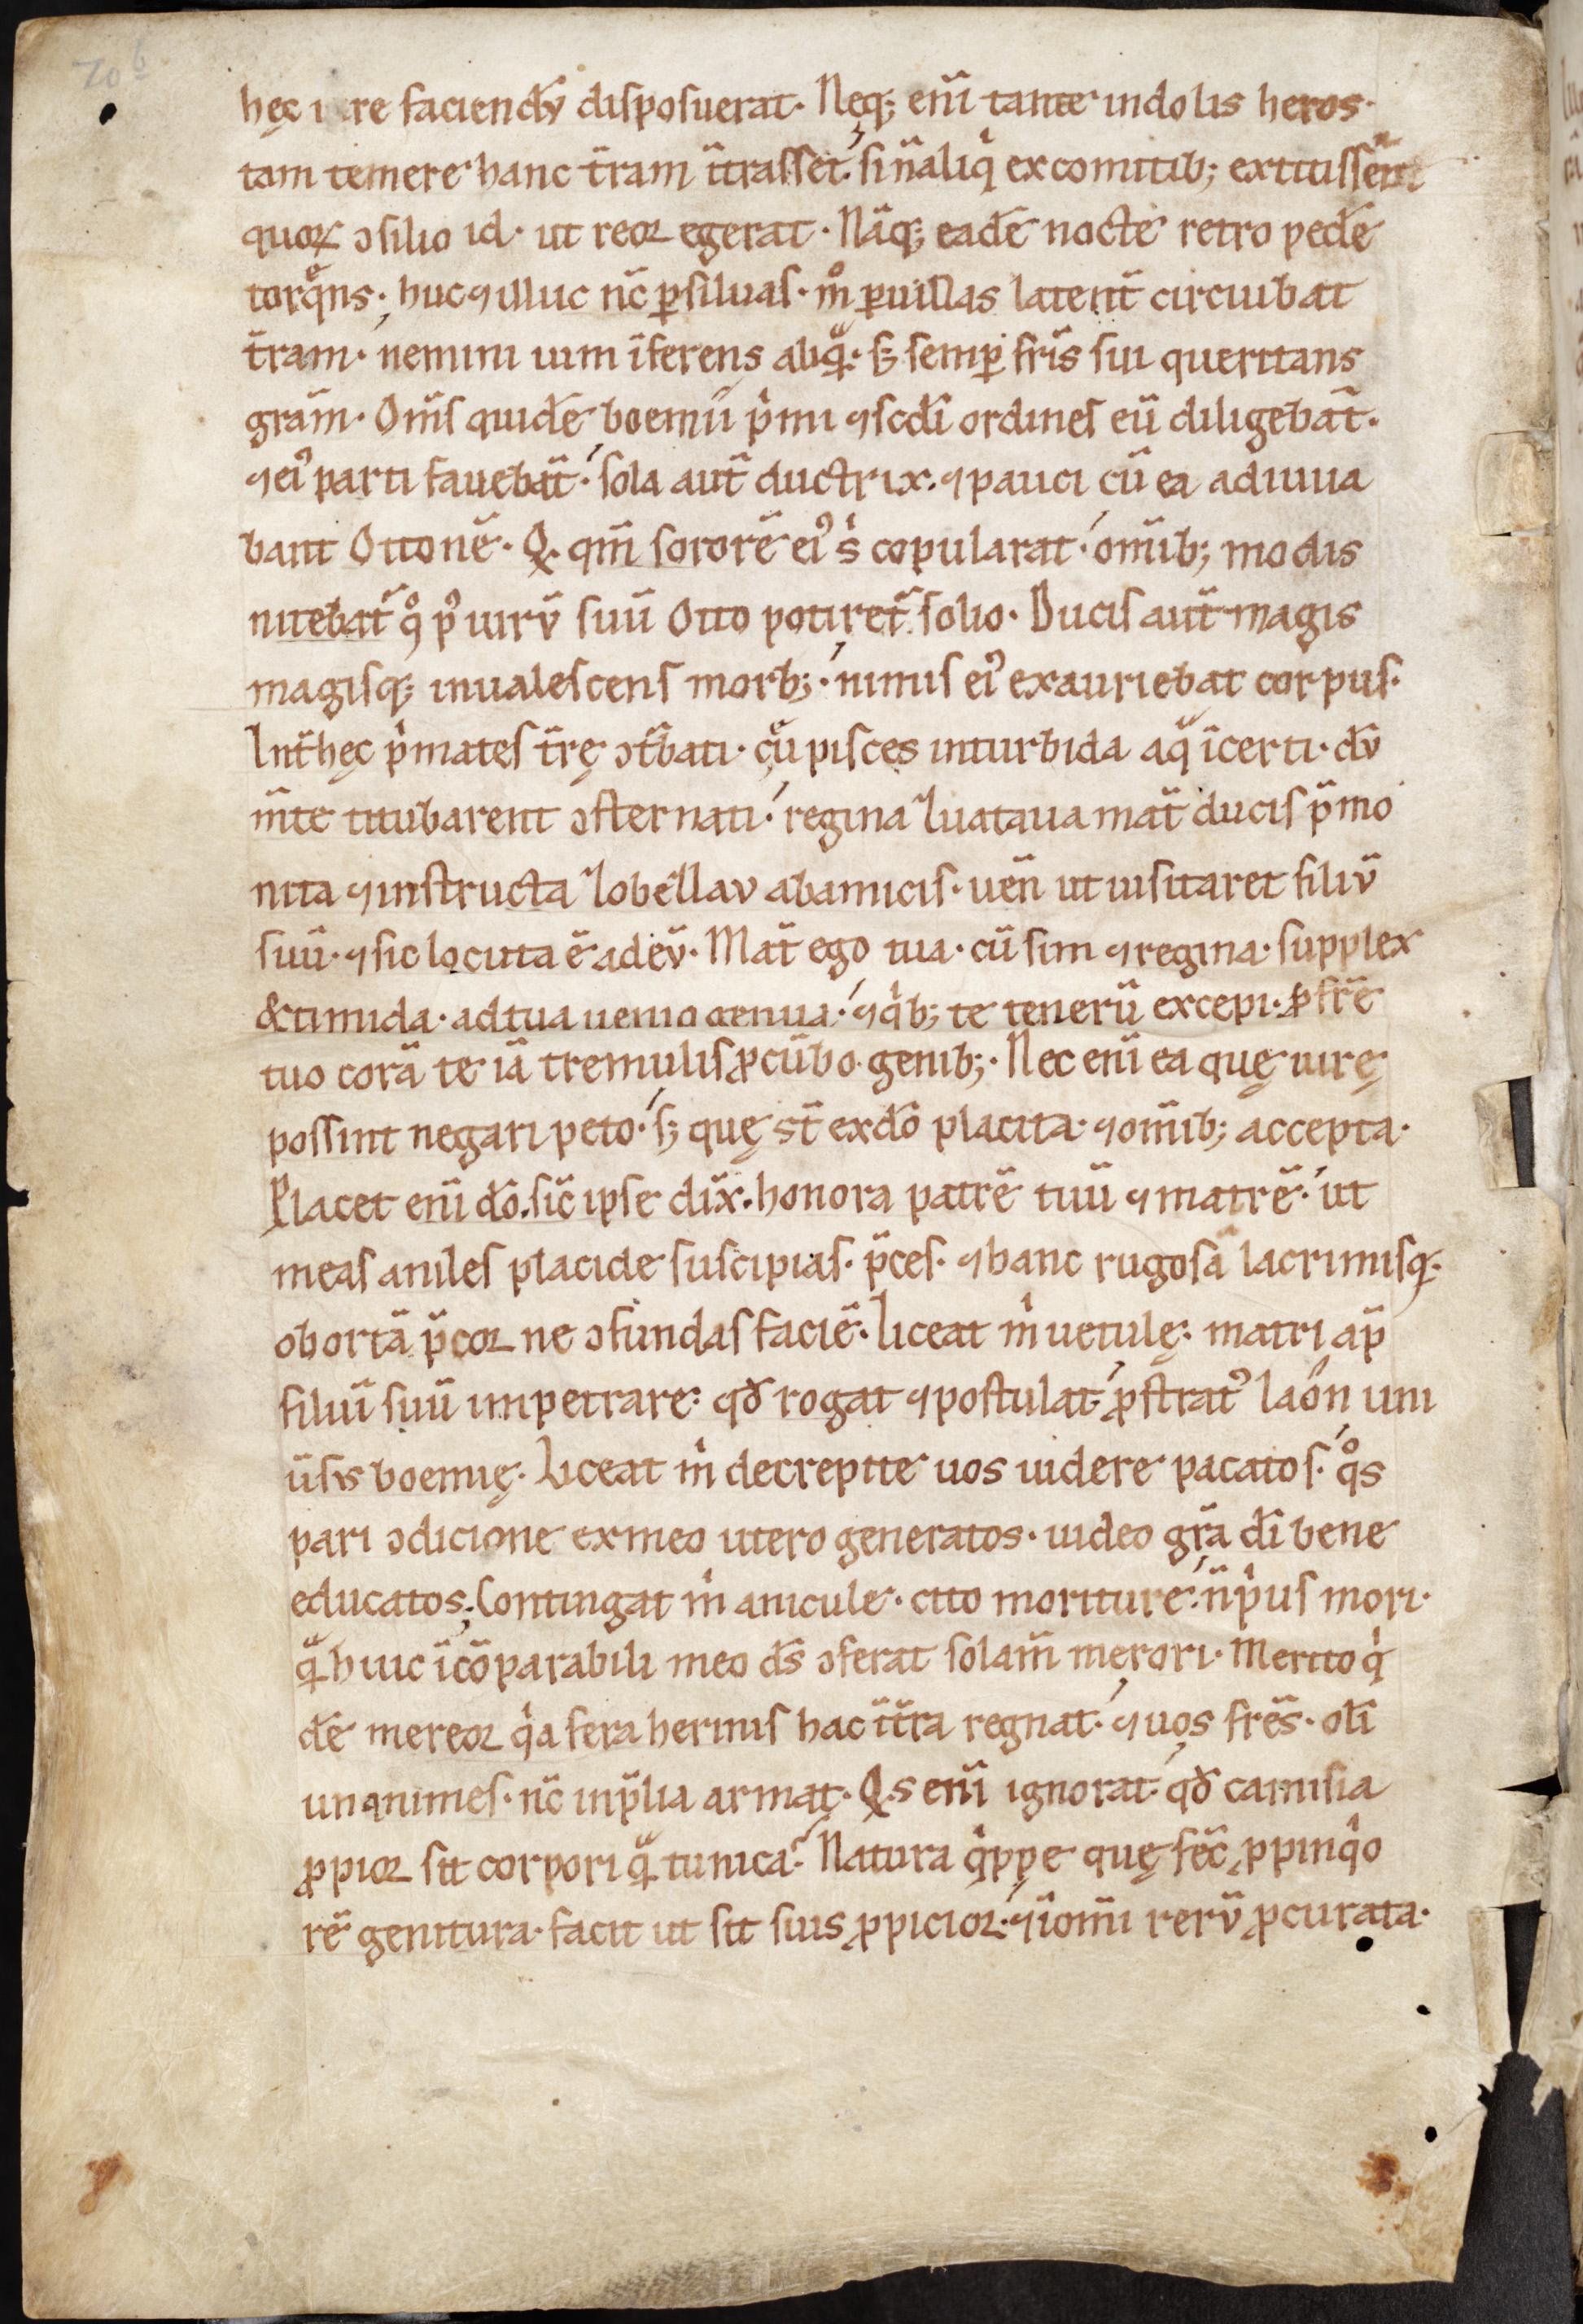 70b
hęc i re faciendū disposuerat. Neq; eni̅ tante indolis heros.
tam temere hanc t̅ram i̅trasset. si n̅ aliq̍ ex comitib; extitisse̅nt
quoꝝ ↄsilio id. ut reoꝛ egerat. Nāq; eadē nocte retro pedē
torq̄ns. huc ⁊ illuc nc̅ ꝑ siluas. mͦ ꝑ uillas latent̅ circuibat
t̅ram. nemini uim i̅ferens aliqͣ. s; semꝑ fr̅is sui queritans
gr̅am. Om̅s quidē boemii p̍mi ⁊ scdi̅ ordines eū diligebāt.
⁊ ei᾽ parti fauebāt. sola aut̅ ductrix. ⁊ pauci cū ea adiuua
bant Ottonē. Q̨ qm̅ sororē ei᾽ s̍ copularat. om̅ib; modis
nitebat̅ qͦ p᾽ uirū suū Otto potiret̅ solio. Ducis aut̅ magis
magisq; inualescens morb;. nimis ei᾽ exauriebat corpus.
Int̅ hęc p̍mates t̅rę ↄt̅bati. ceu pisces in turbida aqͣ i̅certi. dū
m̅te titubarent ↄsternati. regina Zuataua mat̅ ducis p̅mo
nita ⁊ instructa Zobezlau ab amicis. uen̅ ut uisitaret filiū
suū. ⁊ sic locuta ē ad eū. Mat̅ ego tua. cū sim ⁊ regina. supplex
& timida. ad tua uenio genua. ⁊ q̍b; te tenerū excepi. ꝓ fr̅e
tuo corā te iā tremulis ꝓcūbo genib;. Nec eni̅ ea quę iurę
possint negari peto. s; quę st̅ ex dō placita. ⁊ om̅ib; accepta.
Placet eni̅ dō. sic̅ ipse dix̅. honora patrē tuū ⁊ matrē. ut
meas aniles placide suscipias. p̅ces. ⁊ hanc rugosā lacrimisq;.
obortā p̅coꝛ ne ↄfundas faciē. Liceat m̍ uetulę. matri ap̅
filiū suū impetrare. qđ rogat ⁊ postulat. ꝓstrat᾽ laōn uni
ūsis boemię. Liceat m̍ decrepite uos uidere pacatos. qͦs
pari ↄdicione ex meo utero generatos. uideo gr̅a di̅ bene
educatos. Contingat m̍ anicule. cito moriture. n̅ p̍us mori.
qͣ huic i̅cōparabili meo ds̅ ↄferat solam̅ merori. Merito q̍
dē mereoꝛ q̍a fera herinis hac i̅ t̅ra regnat. ⁊ uos fr̅es. oli̅
unanimes. nc̅ in p̅lia armat. Q̨s eni̅ ignorat. qđ camisia
ꝓpioꝛ sit corpori qͣ tunica. Natura q̍ppe quę fec̅ ꝓpinq̍o
rē genitura. facit ut sit suis ꝓpicioꝛ. ⁊ i̅ om̅i rerū ꝓcurata.